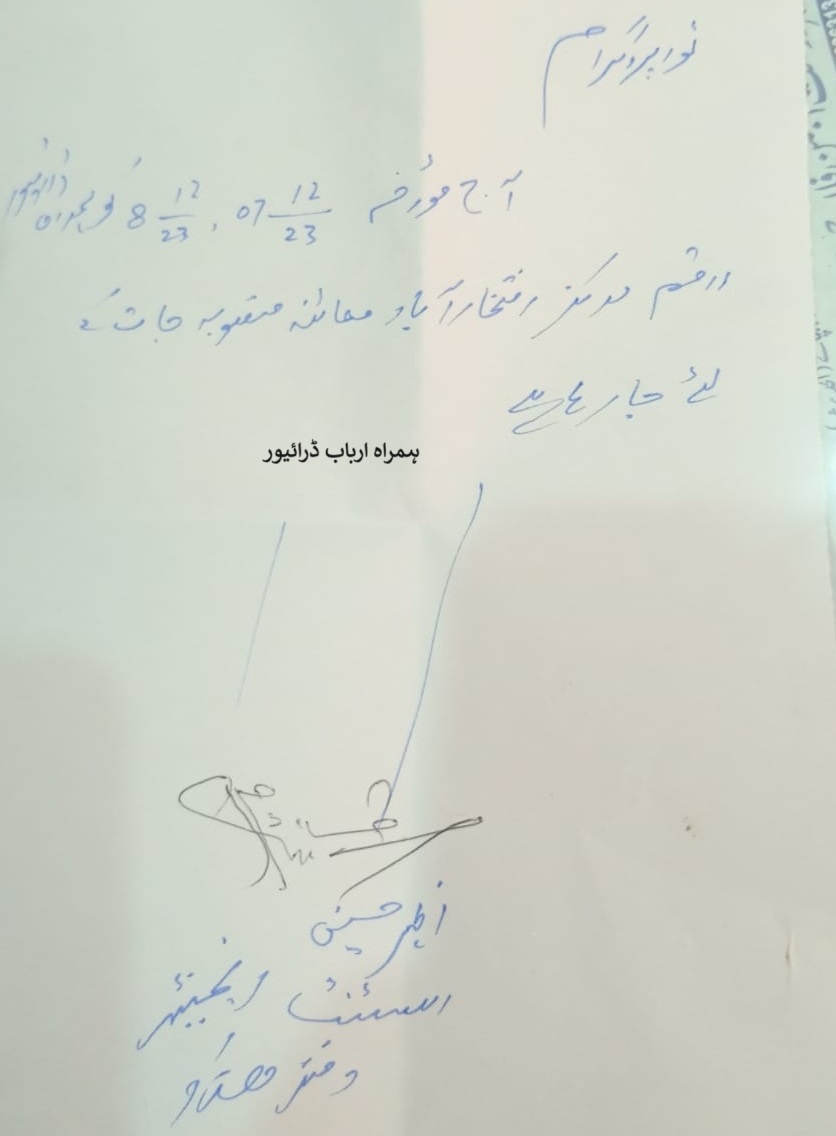 ٹور پروگرام
آج مورخہ 07 12/23 ، 8 12/23 کو بمعہ
راقم مرکز افتخار آباد معائنہ منصوبہ جات کے
لئے جا رہے ہیں
ہمراہ ارباب ڈرائیور
حسین
اسسٹنٹ انجینئر
دفتر